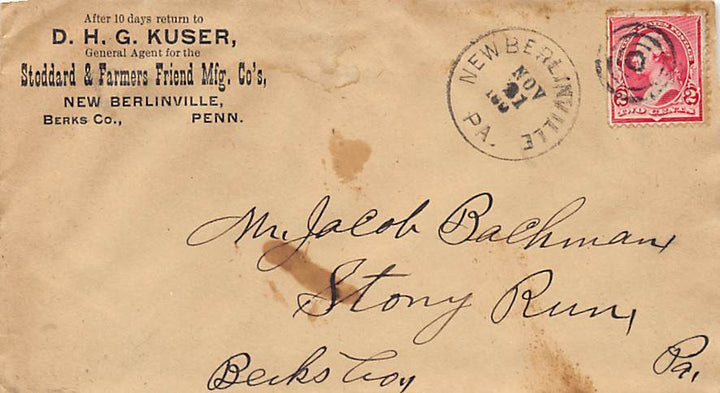 After 10 days return to
D. H. G. KUSER,
General Agent for the
Stoddard & Farmers Friend Mfg. Co's,
NEW BERLINVILLE,
BERKS CO., PENN.
NEW BERLINVILLE
NOV
21
PA.
2 2
TWO CENTS
Mr. Jacob Bachman,
Stony Run,
Berks Coy Pa,